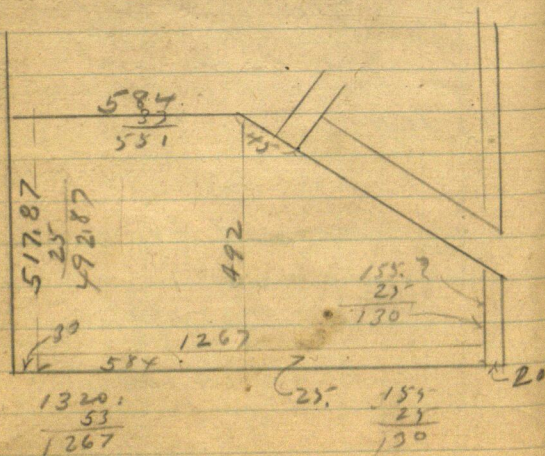 584
33
551
45
517.87
25
492.87
492
155.?
25
130
30
1267
584.
25.
20
1320.
53
1267
155
25
130